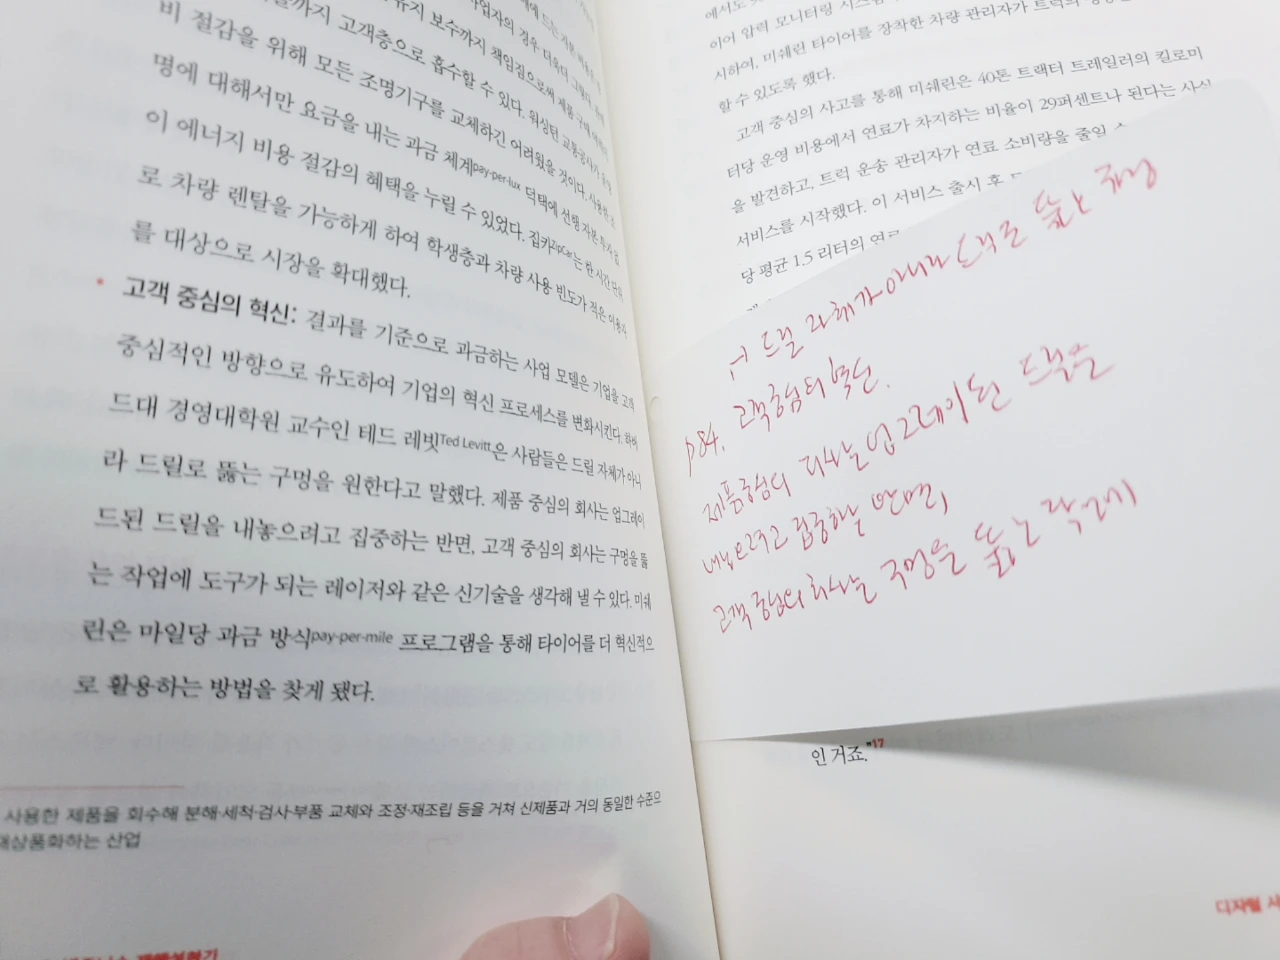 유지 보수까지 책임짐으로써 제품 구매
까지 고객층으로 흡수할 수 있다. 워싱턴 교통공사가
비 절감을 위해 모든 조명기구를 교체하긴 어려웠을 것이다. 사용한 조
명에 대해서만 요금을 내는 과금 체계pay-per-lux 덕택에 선행 자본 투자 없
이 에너지 비용 절감의 혜택을 누릴 수 있었다. 집카ZipCar는 한 시간 단위
로 차량 렌탈을 가능하게 하여 학생층과 차량 사용 빈도가 적은 이용자
를 대상으로 시장을 확대했다.
• 고객 중심의 혁신: 결과를 기준으로 과금하는 사업 모델은 기업을 고객
중심적인 방향으로 유도하여 기업의 혁신 프로세스를 변화시킨다. 하버
드대 경영대학원 교수인 테드 레빗Ted Levitt은 사람들은 드릴 자체가 아니
라 드릴로 뚫는 구멍을 원한다고 말했다. 제품 중심의 회사는 업그레이
드된 드릴을 내놓으려고 집중하는 반면, 고객 중심의 회사는 구멍을 뚫
는 작업에 도구가 되는 레이저와 같은 신기술을 생각해 낼 수 있다. 미쉐
린은 마일당 과금 방식pay-per-mile 프로그램을 통해 타이어를 더 혁신적으
로 활용하는 방법을 찾게 됐다.
사용한 제품을 회수해 분해·세척·검사·부품 교체와 조정·재조립 등을 거쳐 신제품과 거의 동일한 수준으
재상품화하는 산업
이어 압력 모니터링 시스템
시하여, 미쉐린 타이어를 장착한 차량 관리자가 트럭의
할 수 있도록 했다.
고객 중심의 사고를 통해 미쉐린은 40톤 트랙터 트레일러의 킬로미
터당 운영 비용에서 연료가 차지하는 비율이 29퍼센트나 된다는 사실
을 발견하고, 트럭 운송 관리자가 연료 소비량을 줄일 수
서비스를 시작했다. 이 서비스 출시 후
당 평균 1.5 리터의 연료
드릴 자체가 아니라 드릴로 뚫는 구멍
p84. 고객중심의 혁신.
제품중심의 회사는 업그레이드된 드릴을
내놓으려고 집중하는 반면,
고객 중심의 회사는 구멍을 뚫는
인 거죠."17
디지털 사